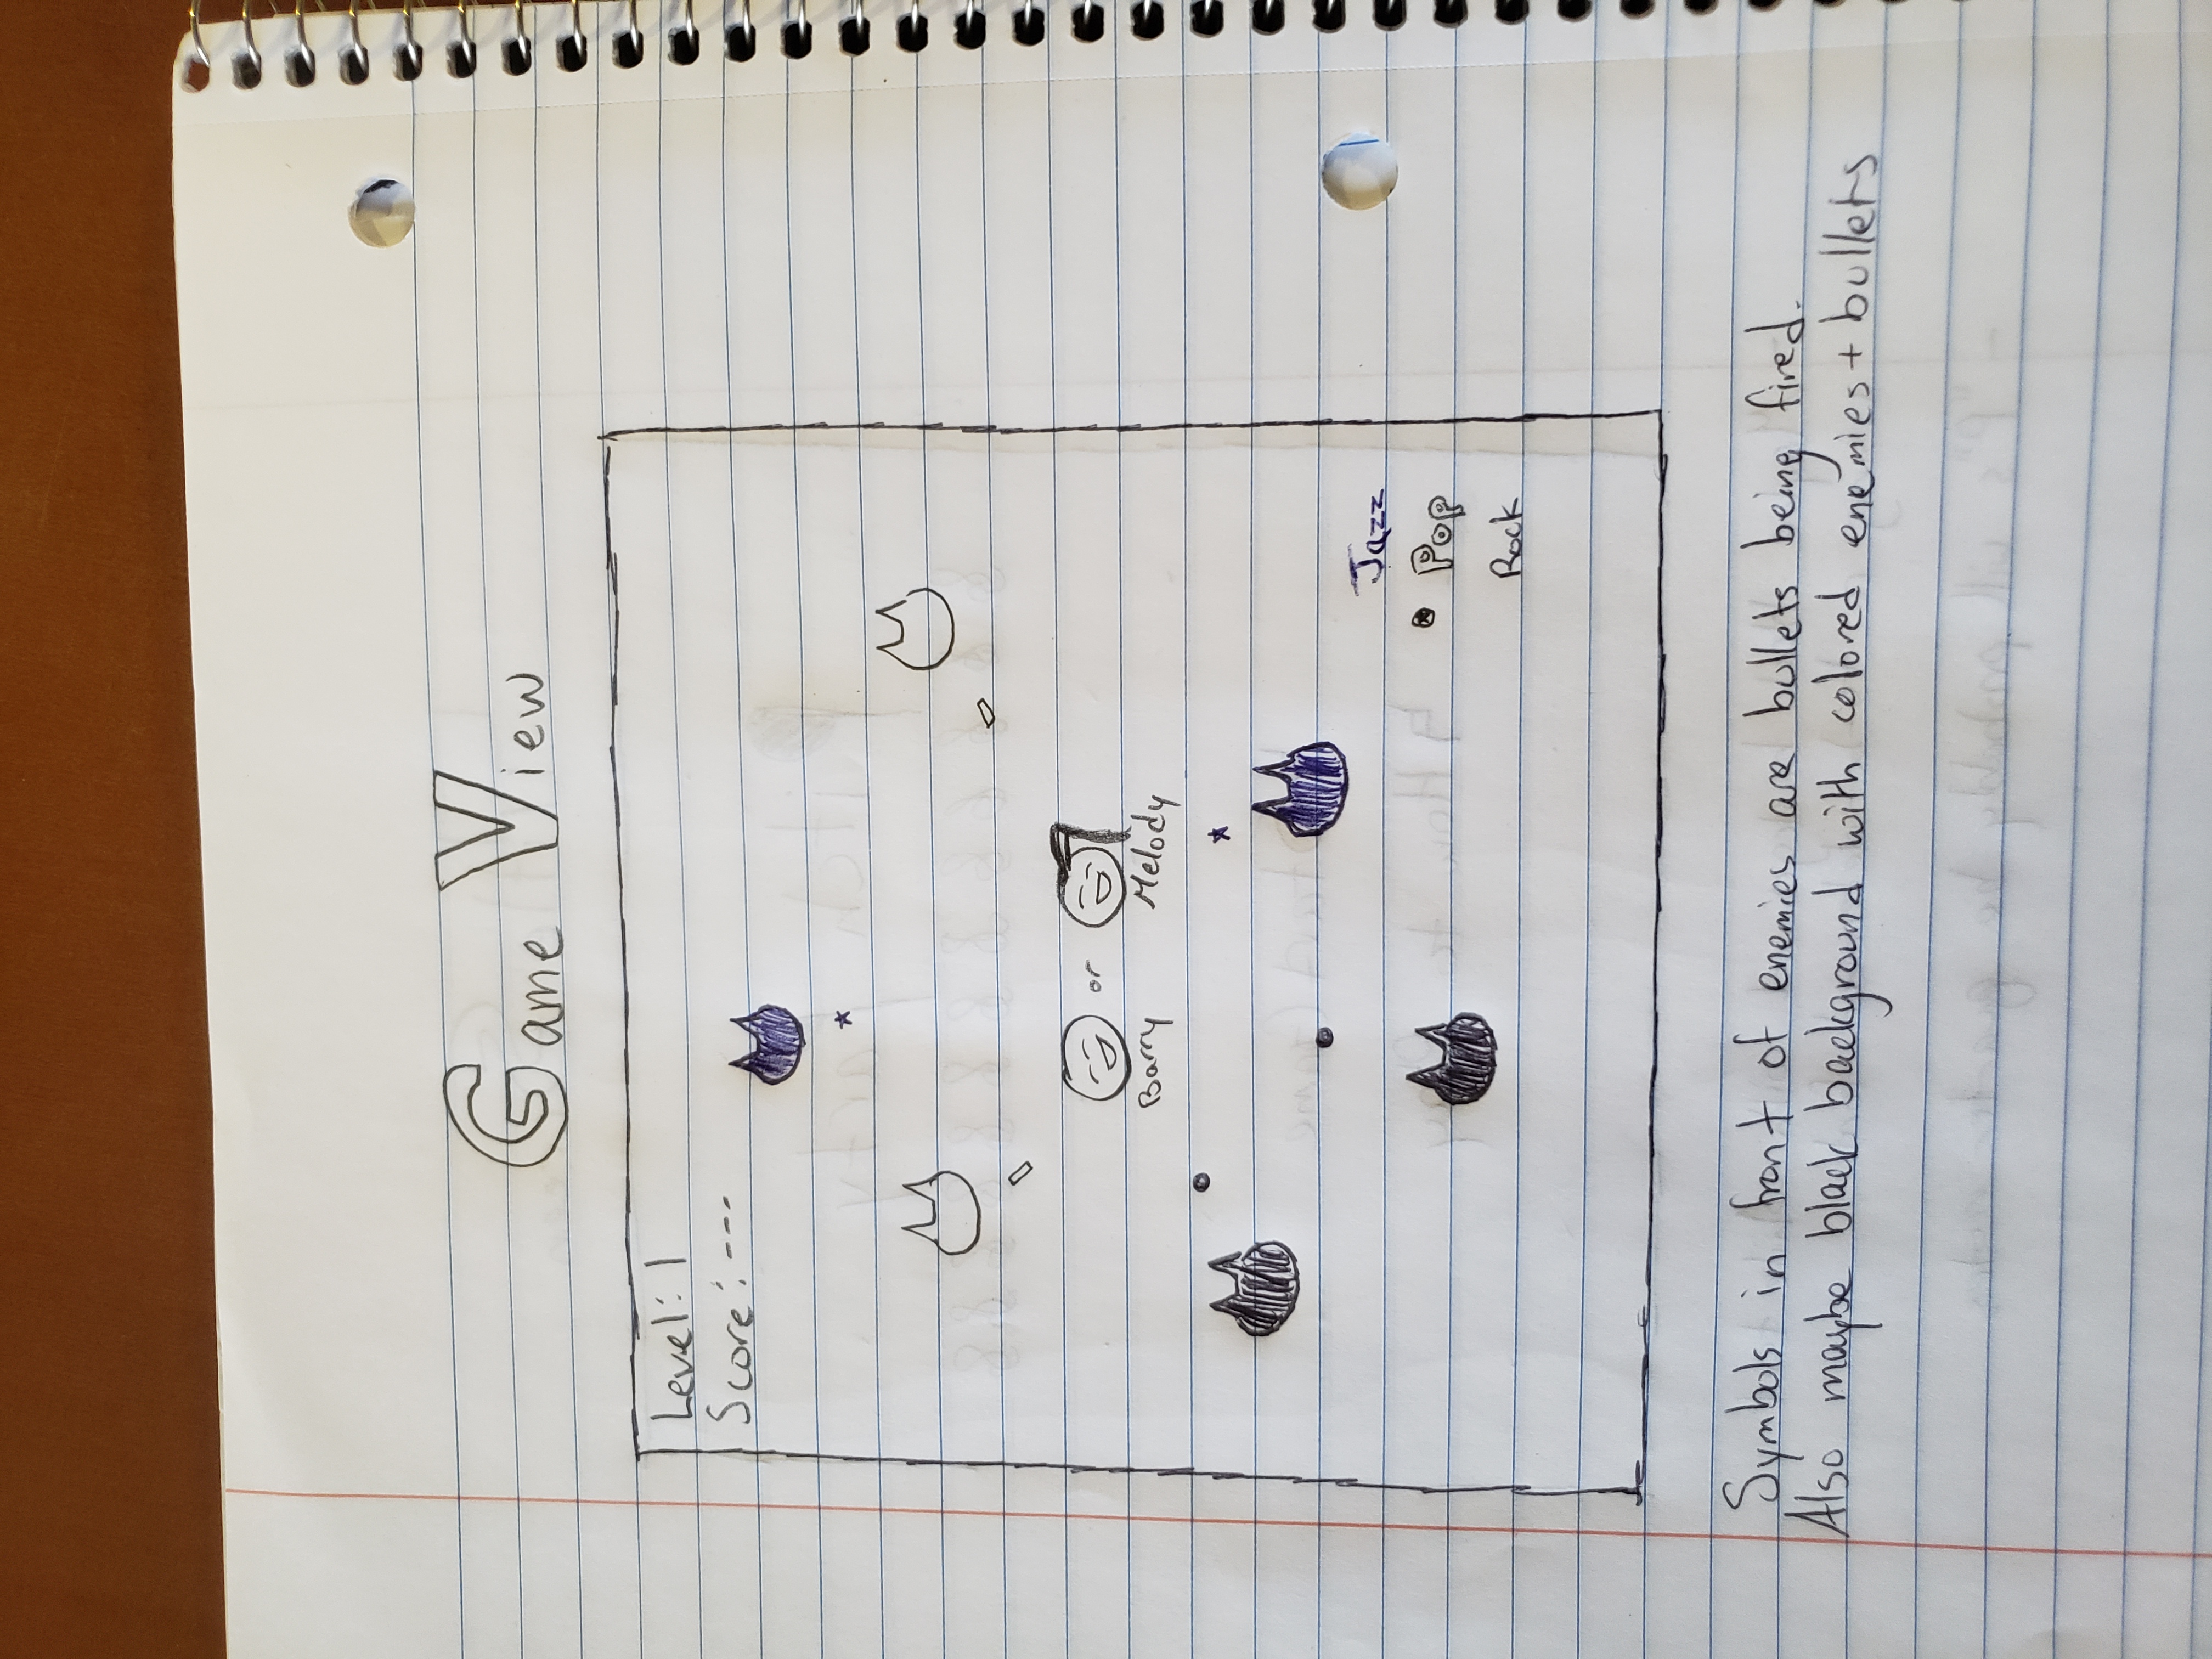 Game View
Level: 1
Score: ---
Barry or Melody
Jazz
Pop
Rock
Symbols in front of enemies are bullets being fired.
Also maybe black background with colored enemies + bullets